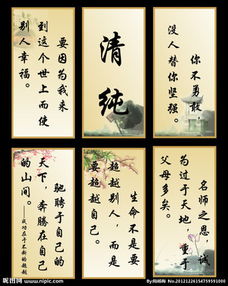 要因为我来
到这个世上而使
别人幸福。
清纯
你不勇敢，
没人替你坚强。
驰骋于自己的
天下，奔腾在自己
的山间。
——成功在于不断的超越
生命不是要
超越别人，而是
要超越自己。
名师之恩，诚
为过于天地，重于
父母多矣。
昵图网
www.nipic.com